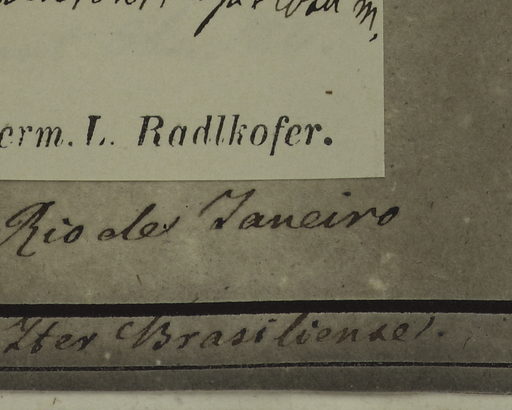 erm. L. Radlkofer.
Rio de Janeiro
Iter Brasiliense.